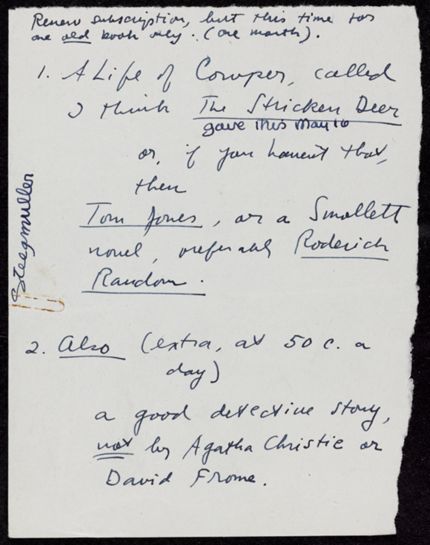 Renew subscription, but this time for
one old book only. (one month).
1. A Life of Cowper, called
I think The Stricken Deer
gave this May 16
or, if you haven't that,
then
Tom Jones, or a Smollett
novel, preferably Roderick
Random.
Steegmuller
2. Also (extra, at 50 c. a
day)
a good detective story,
not by Agatha Christie or
David Frome.